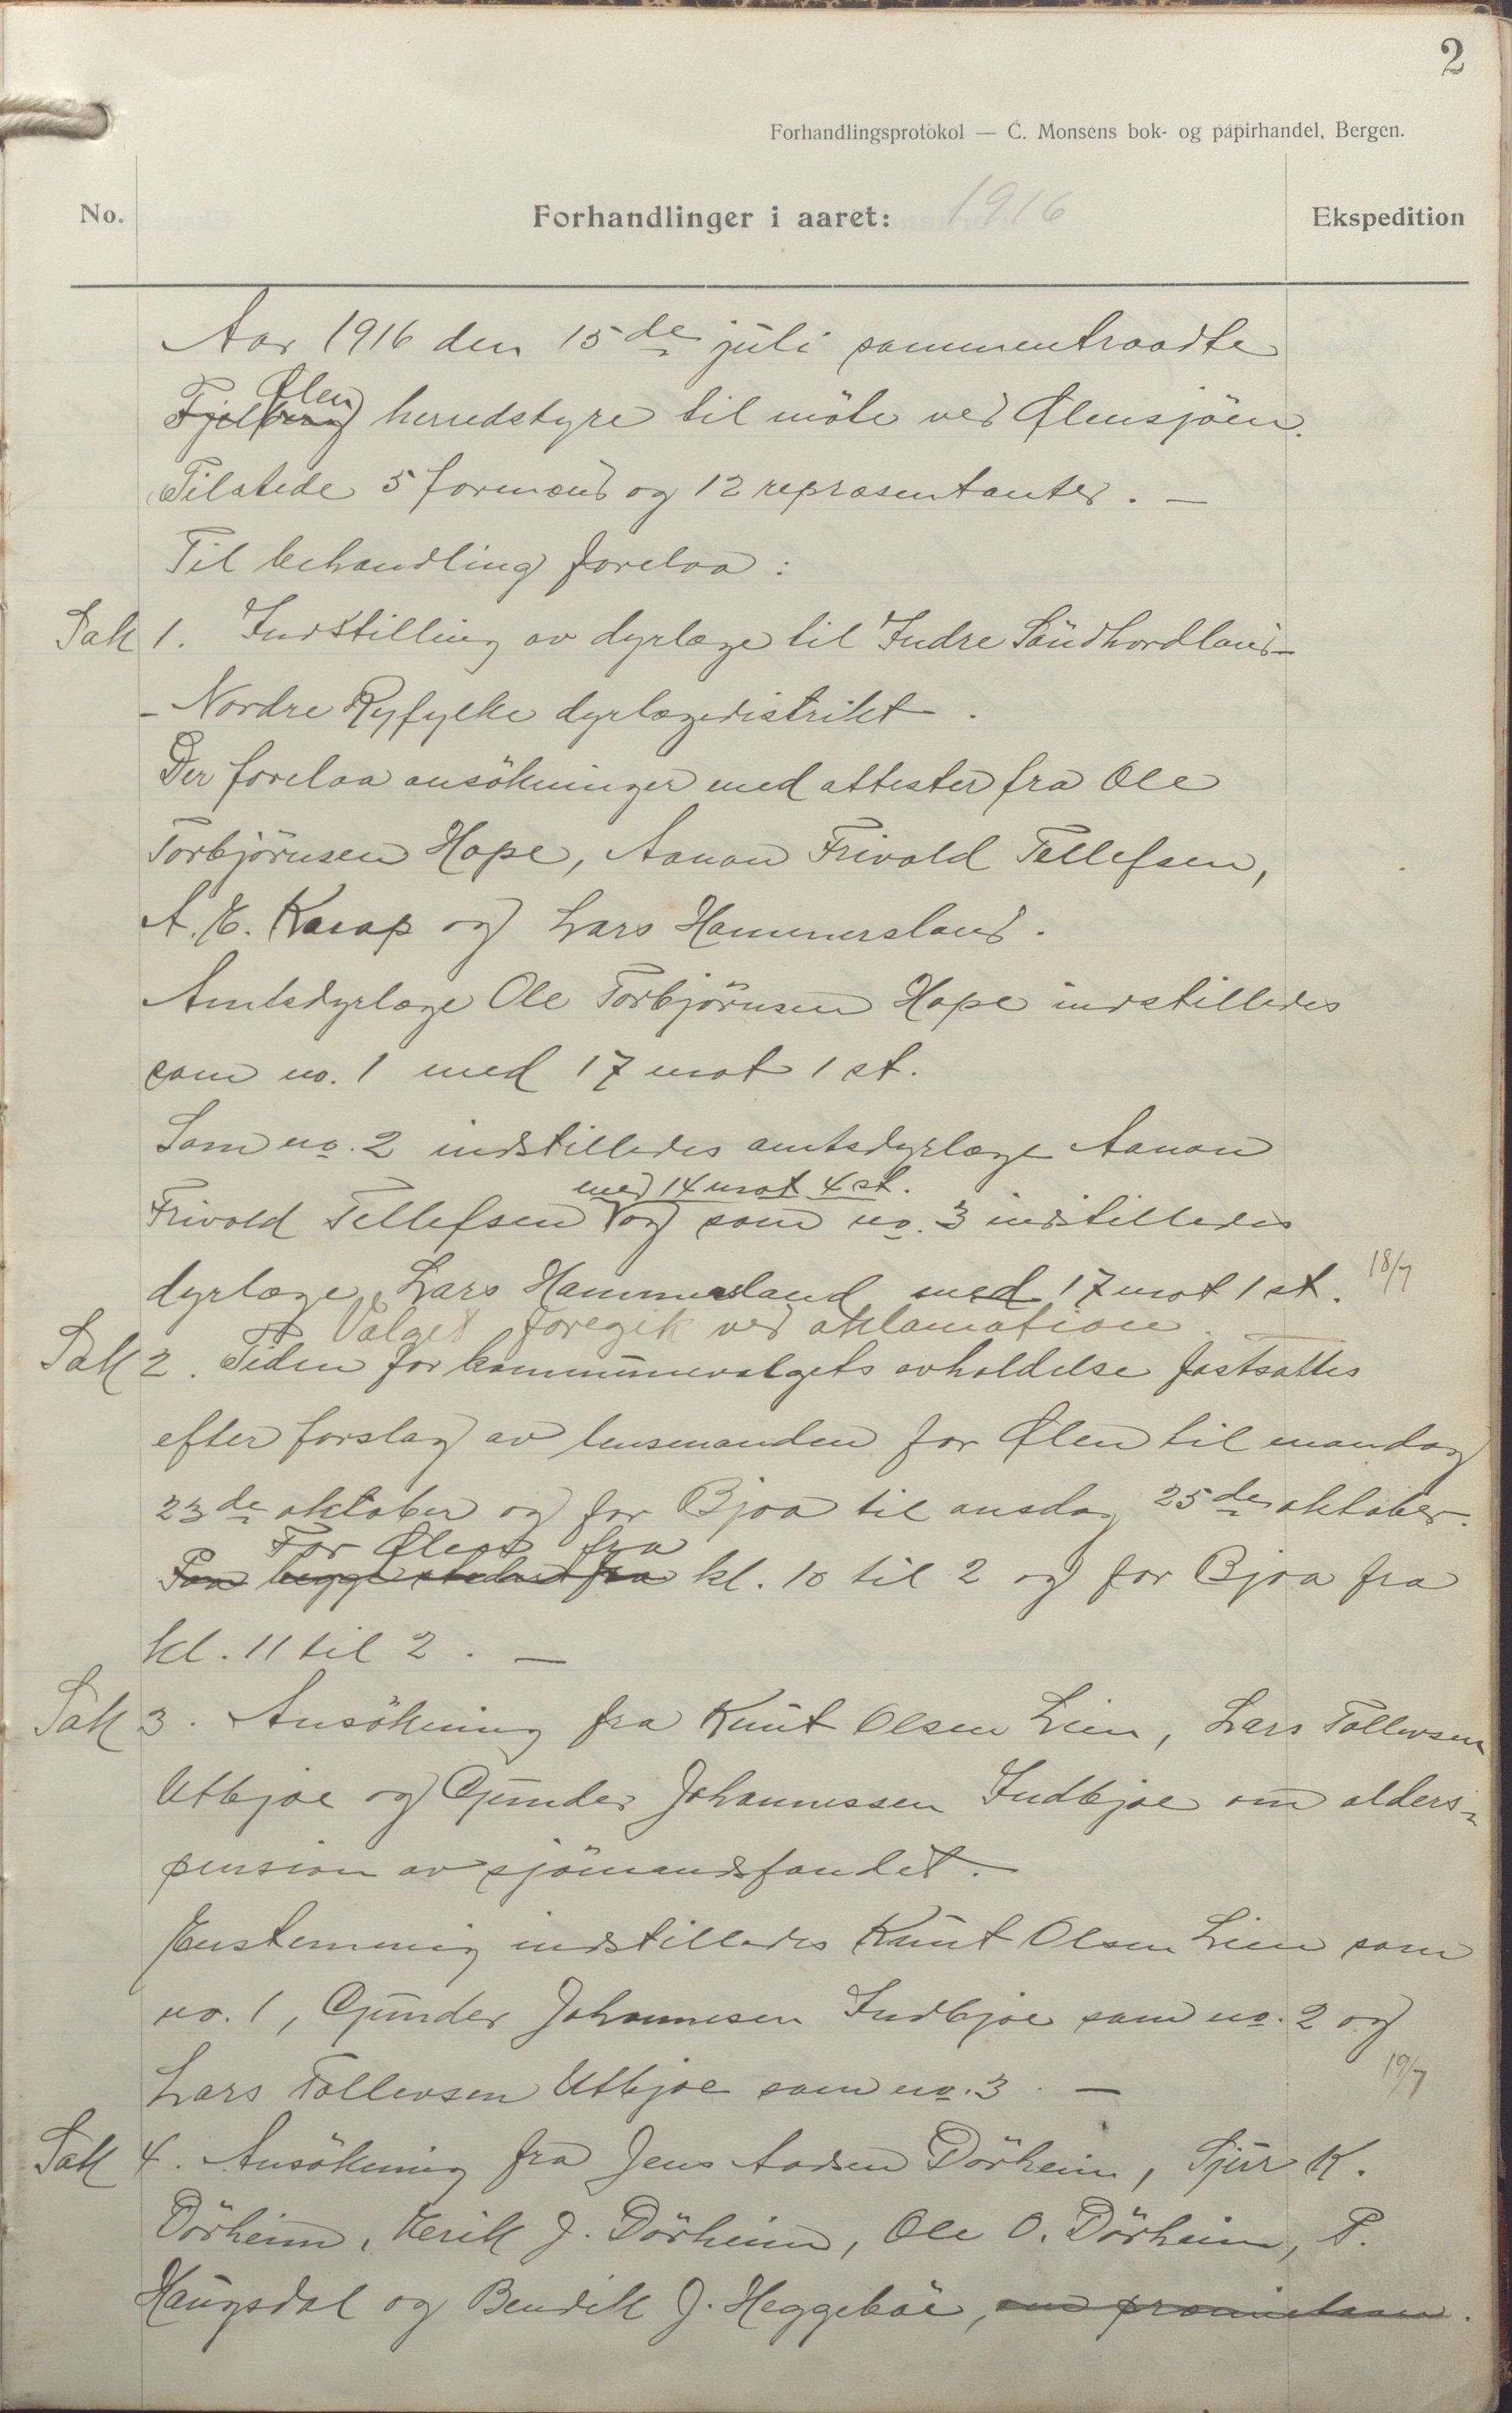 2
Forhandlingsprotokol — C. Monsens bok- og papirhandel, Bergen.
No.
Forhandlinger i aaret: 1916
Ekspedition
Aar 1916 den 15de juli sammentraadte
Ølen
Fjelberg herredstyre til möte ved Ølensjöen.
Tilstede 5 formænd og 12 repræsentanter. —
Til behandling forelaa:
Sak 1. Indstilling av dyrlæge til Indre Söndhordland-
- Nordre Ryfylke dyrlægedistrikt.
Der forelaa ansökninger med attester fra Ole
Torbjörnsen Hope, Aanon Trivold Tellefsen,
A. E. Karap og Lars Hammersland.
Amtsdyrlæge Ole Torbjörnsen Hope indstilledes
som no. 1 med 17 mot 1 st.
Som no. 2 indstilledes amtsdyrlæge Aanon
med 14 mot 4 st.
Trivold Tellefsen og som no. 3 indstilledes
dyrlæge Lars Hammersland med 17 mot 1 st.
18/7
Valget foregik ved aklamation.
Sak 2. Tiden for kommunevalgets avholdelse fastsattes
efter forslag av lensmanden for Ølen til mandag
23de oktober og for Bjoa til onsdag 25de oktober.
For Ølen fra
Paa begge steder fra kl. 10 til 2 og for Bjoa fra
kl. 11 til 2. —
Sak 3. Ansökning fra Knut Olsen Lien, Lars Tollevsen
Utbjoe og Gunder Johannessen Indbjoe om alders-
pension av sjömandsfondet.
Enstemmig indstilledes Knut Olsen Lien som
no. 1, Gunder Johannesen Indbjoe som no. 2 og
Lars Tollevsen Utbjoe som no. 3. —
19/7
Sak 4. Ansökning fra Jens Aadsen Dörheim, Sjur K.
Dörheim, Eerik J. Dörheim, Ole O. Dörheim, P.
Haugsdal og Bendik J. Heggeböe, om